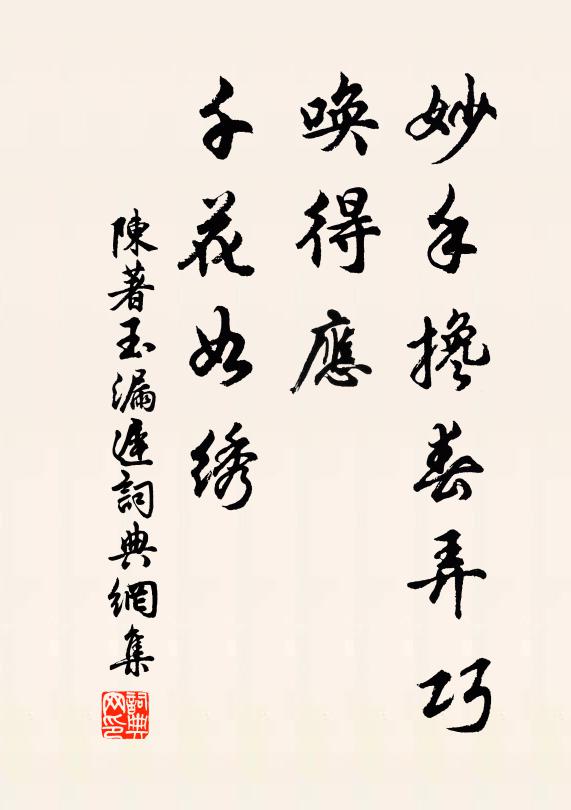 妙手攙春弄巧
喚得應
千花如绣
陳著玉漏遲詞典網集
詞典网印